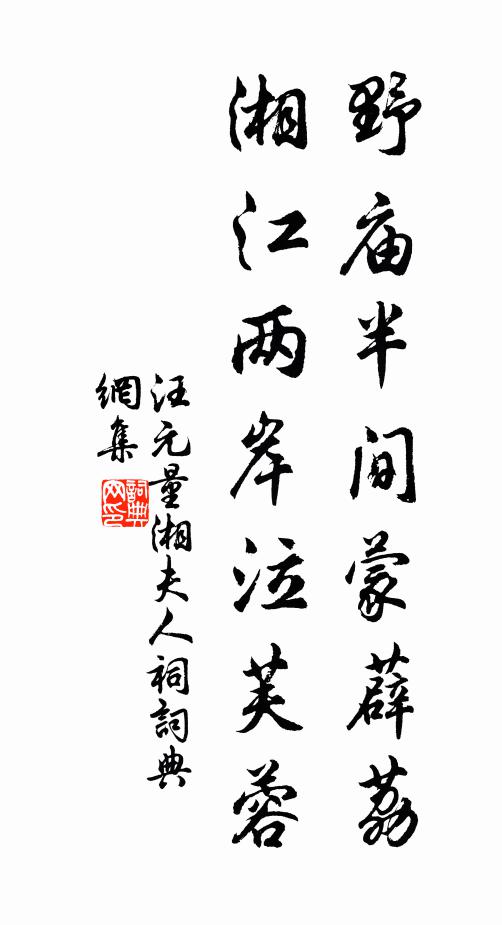 野庙半间蒙薜荔
湘江两岸泣芙蓉
汪元量湘夫人祠詞典
網集
詞典网印